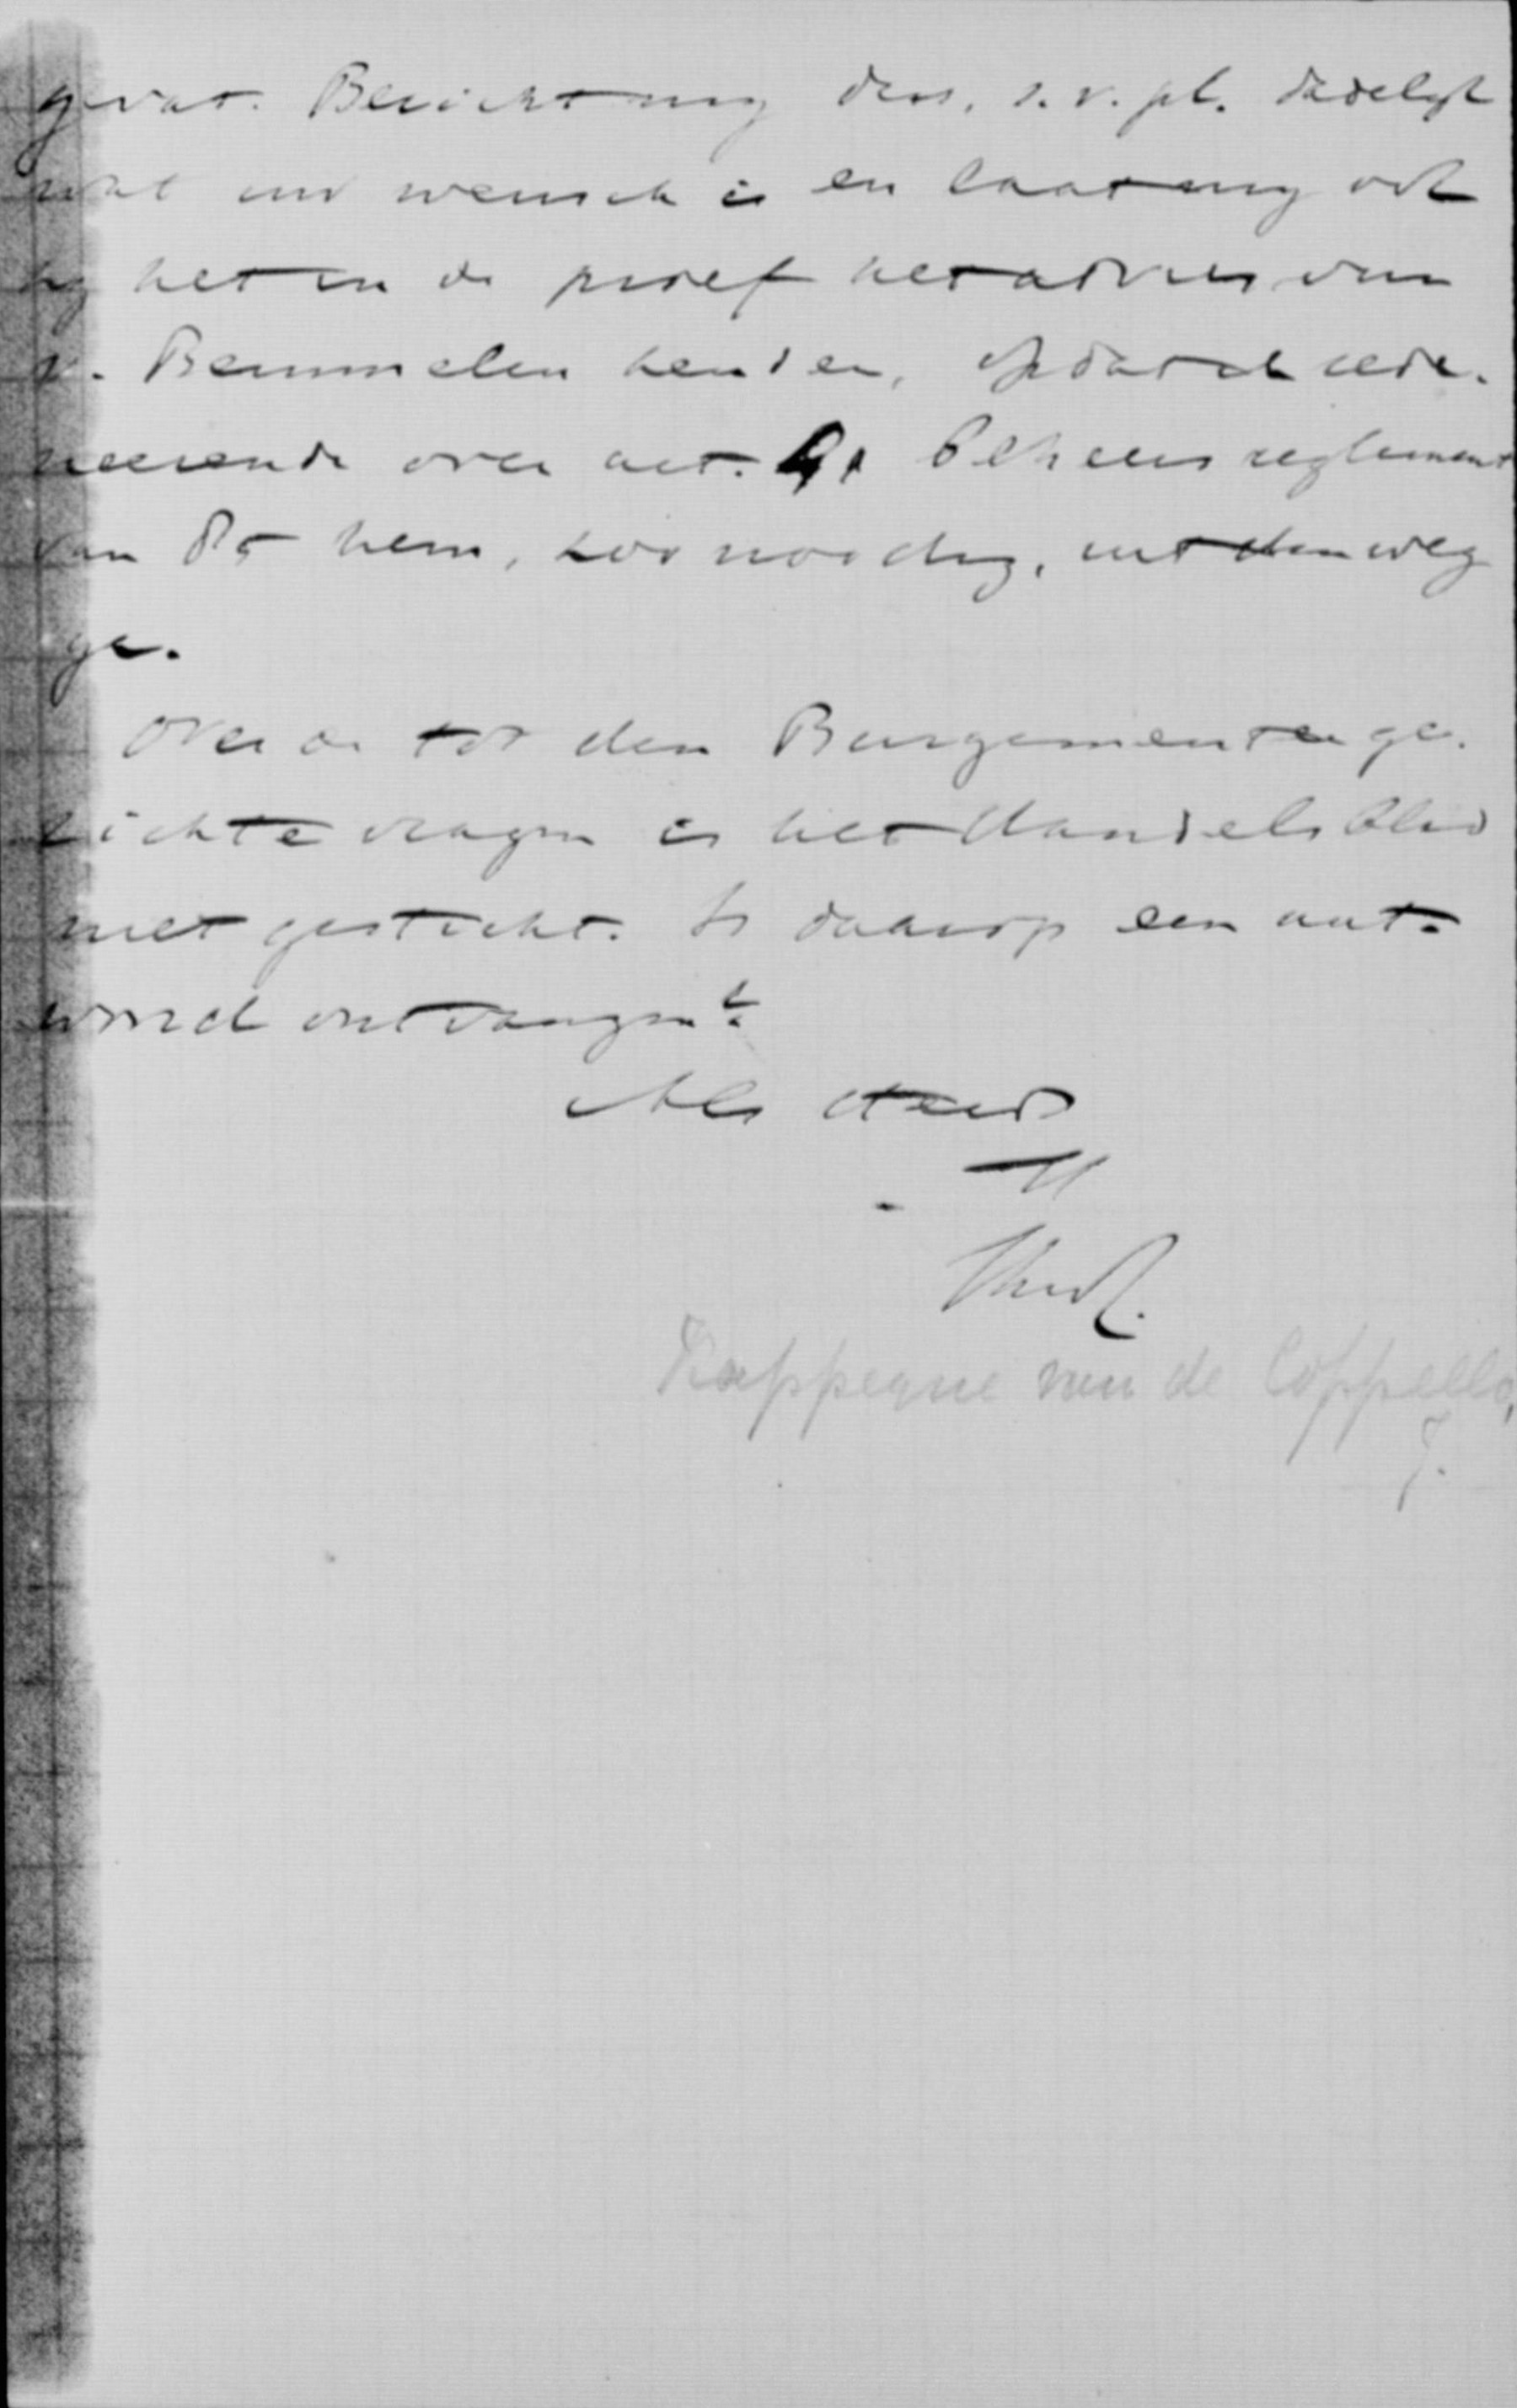 gevat. Bericht mij dus, s.v.pl. dadelijk
wat uw wensch is en laat mij ook
bij het in de proef het advies van
v. Bemmelen zenden, opdat ik rede-
neerende over art. 41 beheersreglement
van dr hem, zoo noodig, uit den weg
ga.
Over de tot den Burgemeester ge-
richte vragen is het Handelsblad
niet gesticht. Is daarop een ant-
woord ontvangen?
Als steeds
Kappeyne van de Coppello,
J.